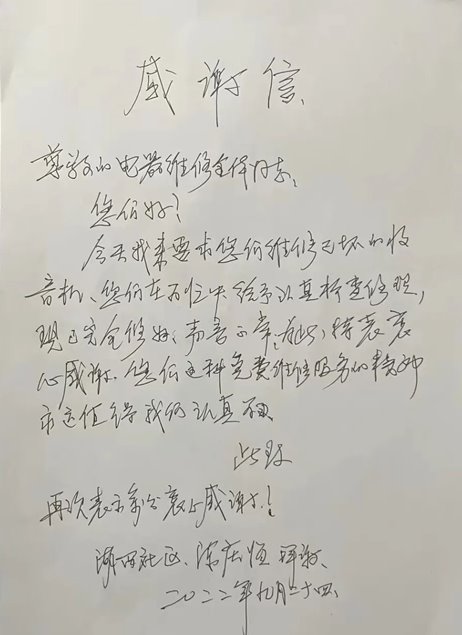 感谢信
尊敬的电器维修全体同志：
您们好！
今天我来要求您们维修已坏的收
音机、您们在百忙中给予认真检查修理，
现已完全修好、声音正常，为此，特表衷
心感谢。您们这种免费维修服务的精神
永远值得我们认真
此致
再次表示万分衷心感谢！
湖田社区、陈庆恒 拜谢、
二〇二二年九月二十四、